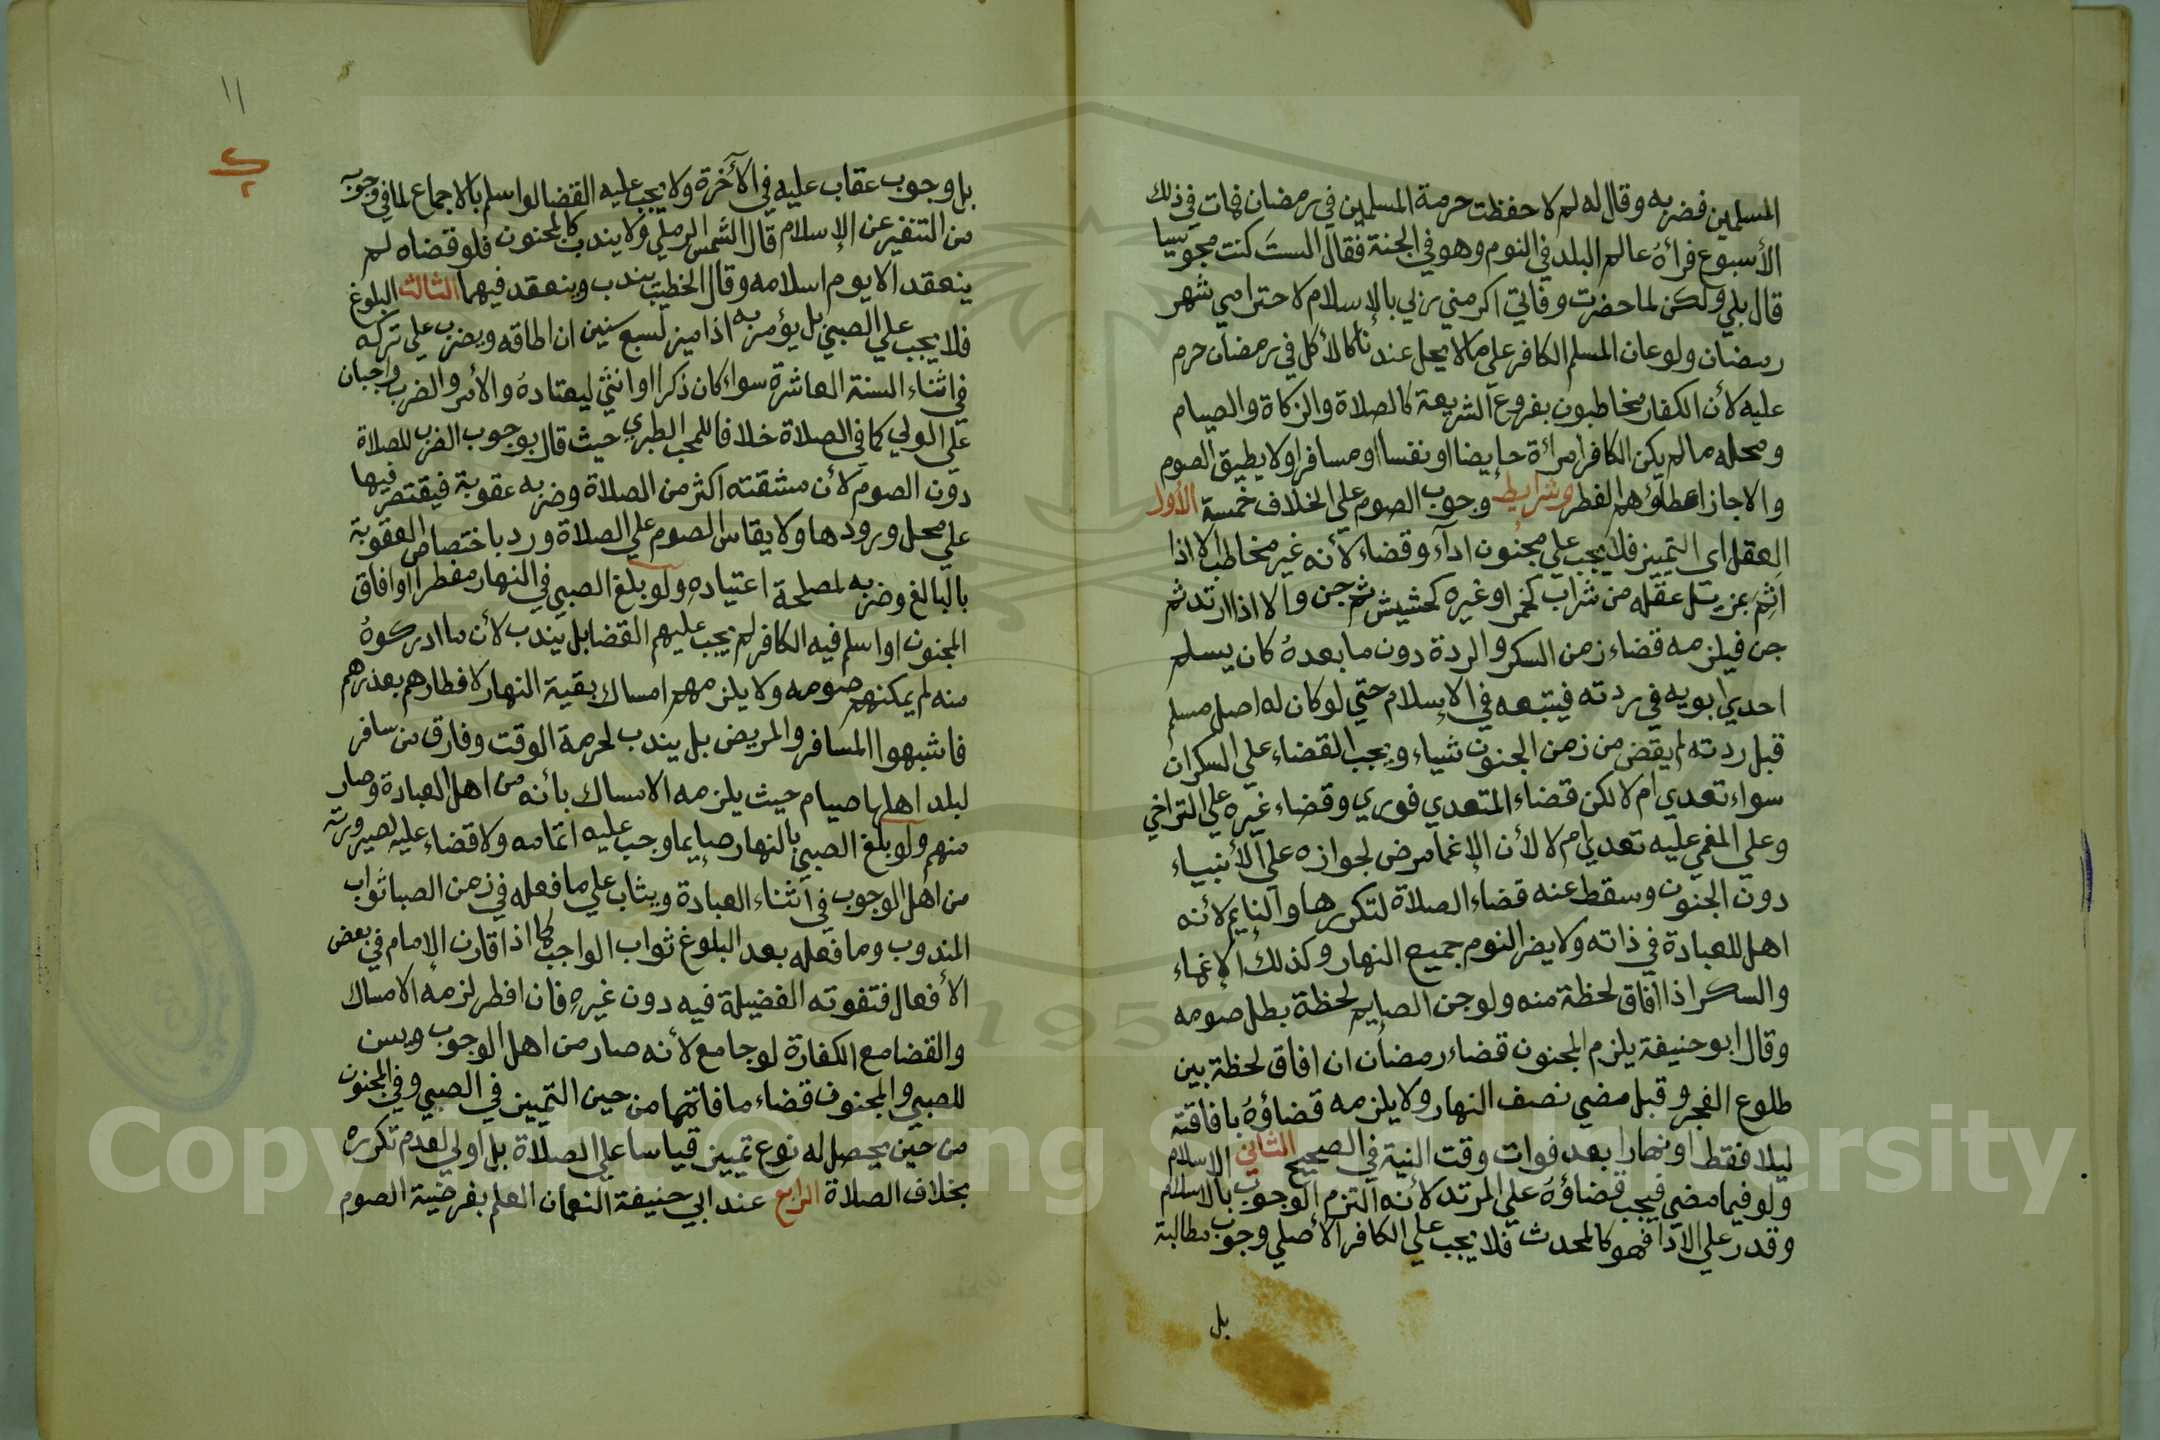 المسلمين فضربه وقال له لم لا حفظت حرمة المسلمين في رمضان فمات في ذلك
الأسبوع فرأهُ عالم البلد في النوم وهو في الجنة فقال الستَ كنت مجوسيا
قال بلي ولكن لما حضرت وفاتي اكرمني ربي بالإسلام لاحترامي شهر
رمضان ولو عان المسلم الكافر علي ما لا يحل عندنا كالأكل في رمضان حرم
عليه لأن الكفار مخاطبون بفروع الشريعة كالصلاة والزكاة والصيام
ومحله ما لم يكن الكافر امرائة حايضا او نفسا او مسافرا ولا يطيق الصوم
والا جاز اعطاؤهم الفطر وشرايط وجوب الصوم علي الخلاف خمسة الأول
العقل اى التمييز فلا يجب علي مجنون اداء وقضاء لأنه غير مخاطب الا اذا
اثِمَ بمزيل عقله من شراب كخمر او غيره كحشيش ثم جن والا اذا ارتد ثم
جن فيلزمه قضاء زمن السكر والردة دون ما بعدهُ كان يسلم
احدي ابويه في ردته فيتبعه في الإسلام حتي لو كان له اصل مسلم
قبل ردته لم يقض من زمن الجنون شياء ويجب القضاء علي السكران
سواء تعدي ام لا لكن قضاء المتعدي فوري وقضاء غيره علي التراخي
وعلي المغمي عليه تعدي ام لا لأن الإغما مرض لجوازه علي الأنبياء
دون الجنون وسقط عنه قضاء الصلاة لتكررها والنايم لأنه
اهل للعبادة في ذاته ولا يضر النوم جميع النهار وكذلك الإغماء
والسكر اذا افاق لحظة منه ولو جن الصايم لحظة بطل صومه
وقال ابو حنيفة يلزم المجنون قضاء رمضان ان افاق لحظة بين
طلوع الفجر وقبل مضي نصف النهار ولا يلزمه قضاؤهُ بافاقته
ليلا فقط او نهارا بعد فوات وقت النية في الصحيح الثاني الاسلام
ولو فيما مضي فيجب قضاؤهُ علي المرتد لأنه التزم الوجوب بالاسلام
وقدر علي الادا فهو كالمحدث فلا يجب علي الكافر الأصلي وجوب مطالبة
بل
١١
بل وجوب عقاب عليه في الآخرة ولا يجب عليه القضا لو اسلم بالاجماع لما في وجوبه
من التنفير عن الإسلام قال الشمس الرملي ولا يندب كالمجنون فلو قضاه لم
ينعقد الا يوم اسلامه وقال الخطيب يندب وينعقد فيهما الثالث البلوغ
فلا يجب علي الصبي بل يؤمر به اذا ميز لسبع سنين ان اطاقه ويضرب علي تركه
في اثناء السنة العاشرة سواء كان ذكرا او انثي ليعتادهُ والأمر والضرب واجبان
علي الولي كما في الصلاة خلافا للمحب الطبري حيث قال بوجوب الضرب للصلاة
دون الصوم لأن مشقته اكثر من الصلاة وضربه عقوبة فيقتصر فيها
علي محل ورودها ولا يقاس الصوم علي الصلاة ورد باختصاص العقوبة
بالبالغ وضربه لمصلحة اعتيادهِ ولو بلغ الصبي في النهار مفطرا او افاق
المجنون او اسلم فيه الكافر لم يجب عليهم القضا بل يندب لأن ما ادركوهُ
منه لم يمكنهم صومه ولا يلزمهم امساك بقية النهار لافطارهم بعذرهم
فاشبهوا المسافر والمريض بل يندب لحرمة الوقت وفارق من سافر
لبلد اهلها صيام حيث يلزمه الامساك بأنه من اهل العبادة وصار
منهم ولو بلغ الصبي بالنهار صايما وجب عليه اتمامه ولا قضاء عليه لصيرورته
من اهل الوجوب في اثناء العبادة ويثاب علي ما فعله في زمن الصبا ثواب
المندوب وما فعله بعد البلوغ ثواب الواجب كما اذا قارن الإمام في بعض
الأفعال فتفوته الفضيلة فيه دون غيرهِ فان افطر لزمه الامساك
والقضا مع الكفارة لو جامع لأنه صار من اهل الوجوب ويسن
للصبي والمجنون قضاء ما فاتهما من حين التمييز في الصبي وفي المجنون
من حين يحصل له نوع تمييز قياسا علي الصلاة بل اولي لعدم تكرره
بخلاف الصلاة الرابع عند ابي حنيفة النعمان العلم بفرضية الصوم
Copyright © King Saud University
1957